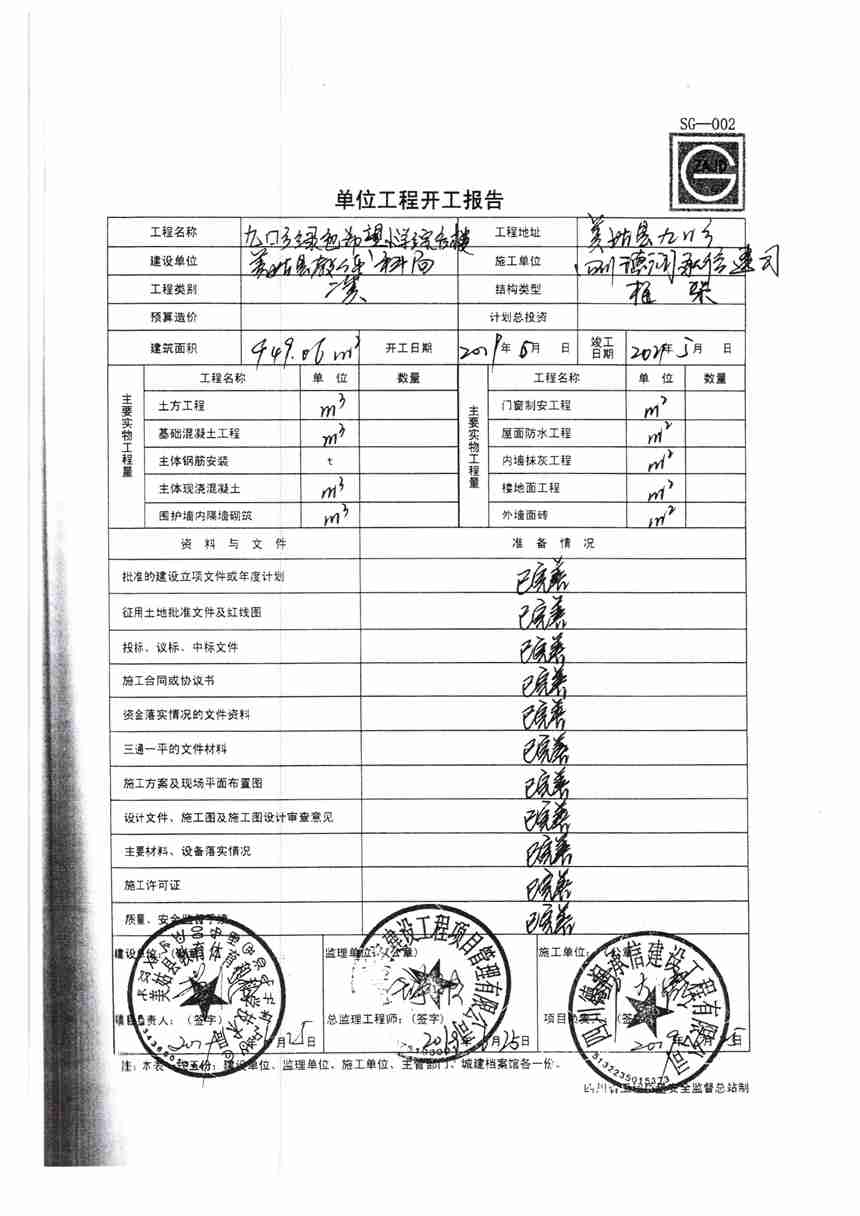 SG—002
ZAJD
单位工程开工报告
工程名称 九口乡 工程地址 美姑县九口乡
建设单位 美姑县 科局 施工单位 四川德润承信建司
工程类别 二类 结构类型 框架
预算造价 计划总投资
建筑面积 949.06 m² 开工日期 2019年6月 日 竣工日期 年5月 日
主要实物工程量 工程名称 单位 数量 主要实物工程量 工程名称 单位 数量
土方工程 m³ 门窗制安工程 m²
基础混凝土工程 m³ 屋面防水工程 m²
主体钢筋安装 t 内墙抹灰工程 m²
主体现浇混凝土 m³ 楼地面工程 m²
围护墙内隔墙砌筑 m³ 外墙面砖 m²
资料与文件 准备情况
批准的建设立项文件或年度计划 已完善
征用土地批准文件及红线图 已完善
投标、议标、中标文件 已完善
施工合同或协议书 已完善
资金落实情况的文件资料 已完善
三通一平的文件材料 已完善
施工方案及现场平面布置图 已完善
设计文件、施工图及施工图设计审查意见 已完善
主要材料、设备落实情况 已完善
施工许可证 已完善
质量、安全监督手续 已完善
建设单位：（公章） 监理单位：（公章） 施工单位：（公章）
项目负责人：（签字） 总监理工程师：（签字） 项目负责人：（签字）
月25日 2019年 月25日 2019年 月 5日
注：本表一式五份：建设单位、监理单位、施工单位、主管部门、城建档案馆各一份。
四川省工程质量安全监督总站制
美姑县教育体育和科学技术局
建设工程项目管理有限公司
四川德润承信建设工程有限公司
5132235015373